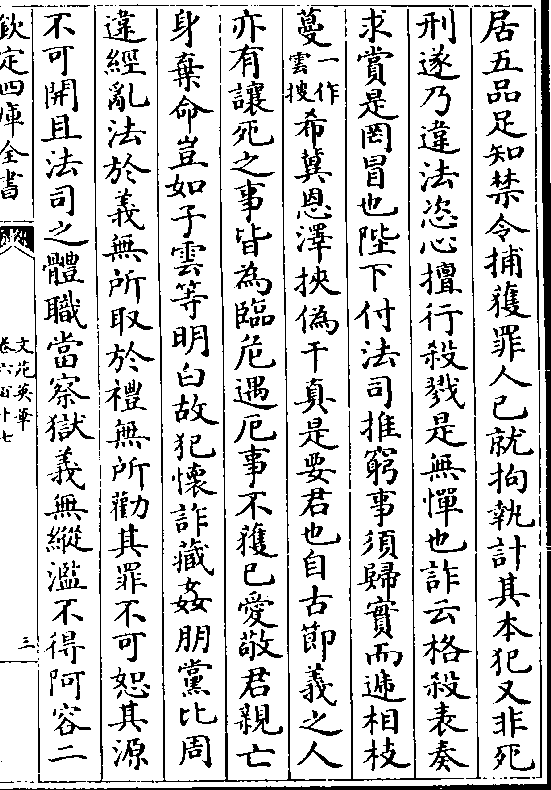 居五品足知禁令捕獲罪人已就拘執計其本犯又非死
刑遂乃違法恣心擅行殺戮是無憚也詐云格殺表奏
求賞是罔冒也陛下付法司推窮事須歸實而遞相枝
蔓一作雲搜希兾恩澤挾偽干真是要君也自古節義之人
亦有讓死之事皆為臨危遇厄事不獲已愛敬君親亡
身棄命豈如子雲等明白故犯懷詐藏姦朋黨比周
違經亂法於義無所取於禮無所勸其罪不可恕其源
不可開且法司之體職當察獄義無縱濫不得阿容二
欽定四庫全書
文苑英華
卷六百十七
三